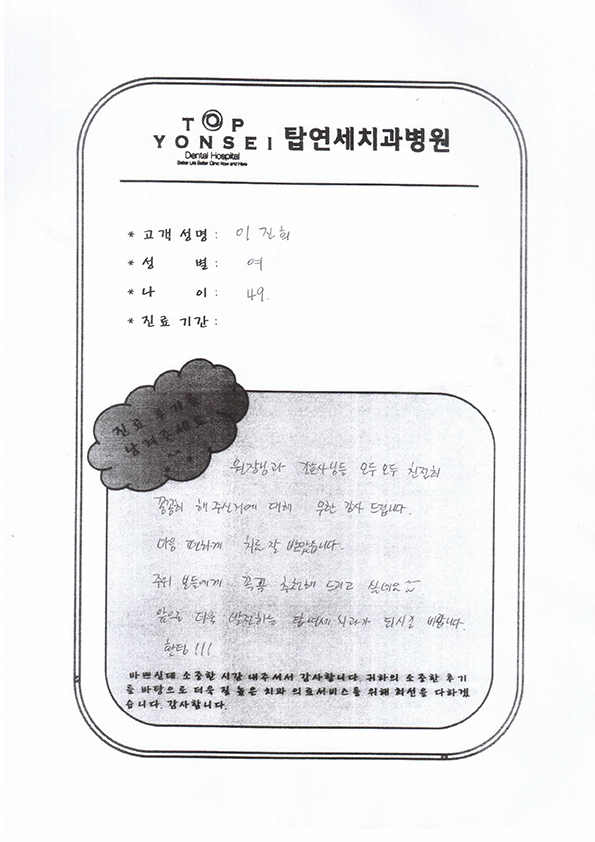 TOP
YONSEI 탑연세치과병원
Dental Hospital
Better Life Better Clinic Now and Here
* 고객 성명 : 이 진희
* 성 별 : 여
* 나 이 : 49.
* 진료 기간 :
진료 후기를
남겨주세요
^^
원장님과 간호사님등 모두모두 친절히
꼼꼼히 해주신거에 대해 무한 감사 드립니다.
마음 편하게 치료 잘 받았습니다.
주위 분들에게 꼭꼭 추천해 드리고 싶네요~
앞으로 더욱 발전하는 탑연세 치과가 되시길 바랍니다.
화팅!!!
바쁘신데 소중한 시간 내주셔서 감사합니다. 귀하의 소중한 후기
를 바탕으로 더욱 질 높은 치과 의료서비스를 위해 최선을 다하겠
습니다. 감사합니다.